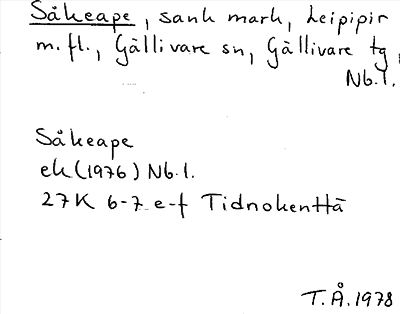 Såkeape, sank mark, Leipipir
m. fl., Gällivare sn, Gällivare tg,
Nb. l.
Såkeape
ek (1976) Nb. l.
27K 6-7 e-f Tidnokenttä
T.Å. 1978